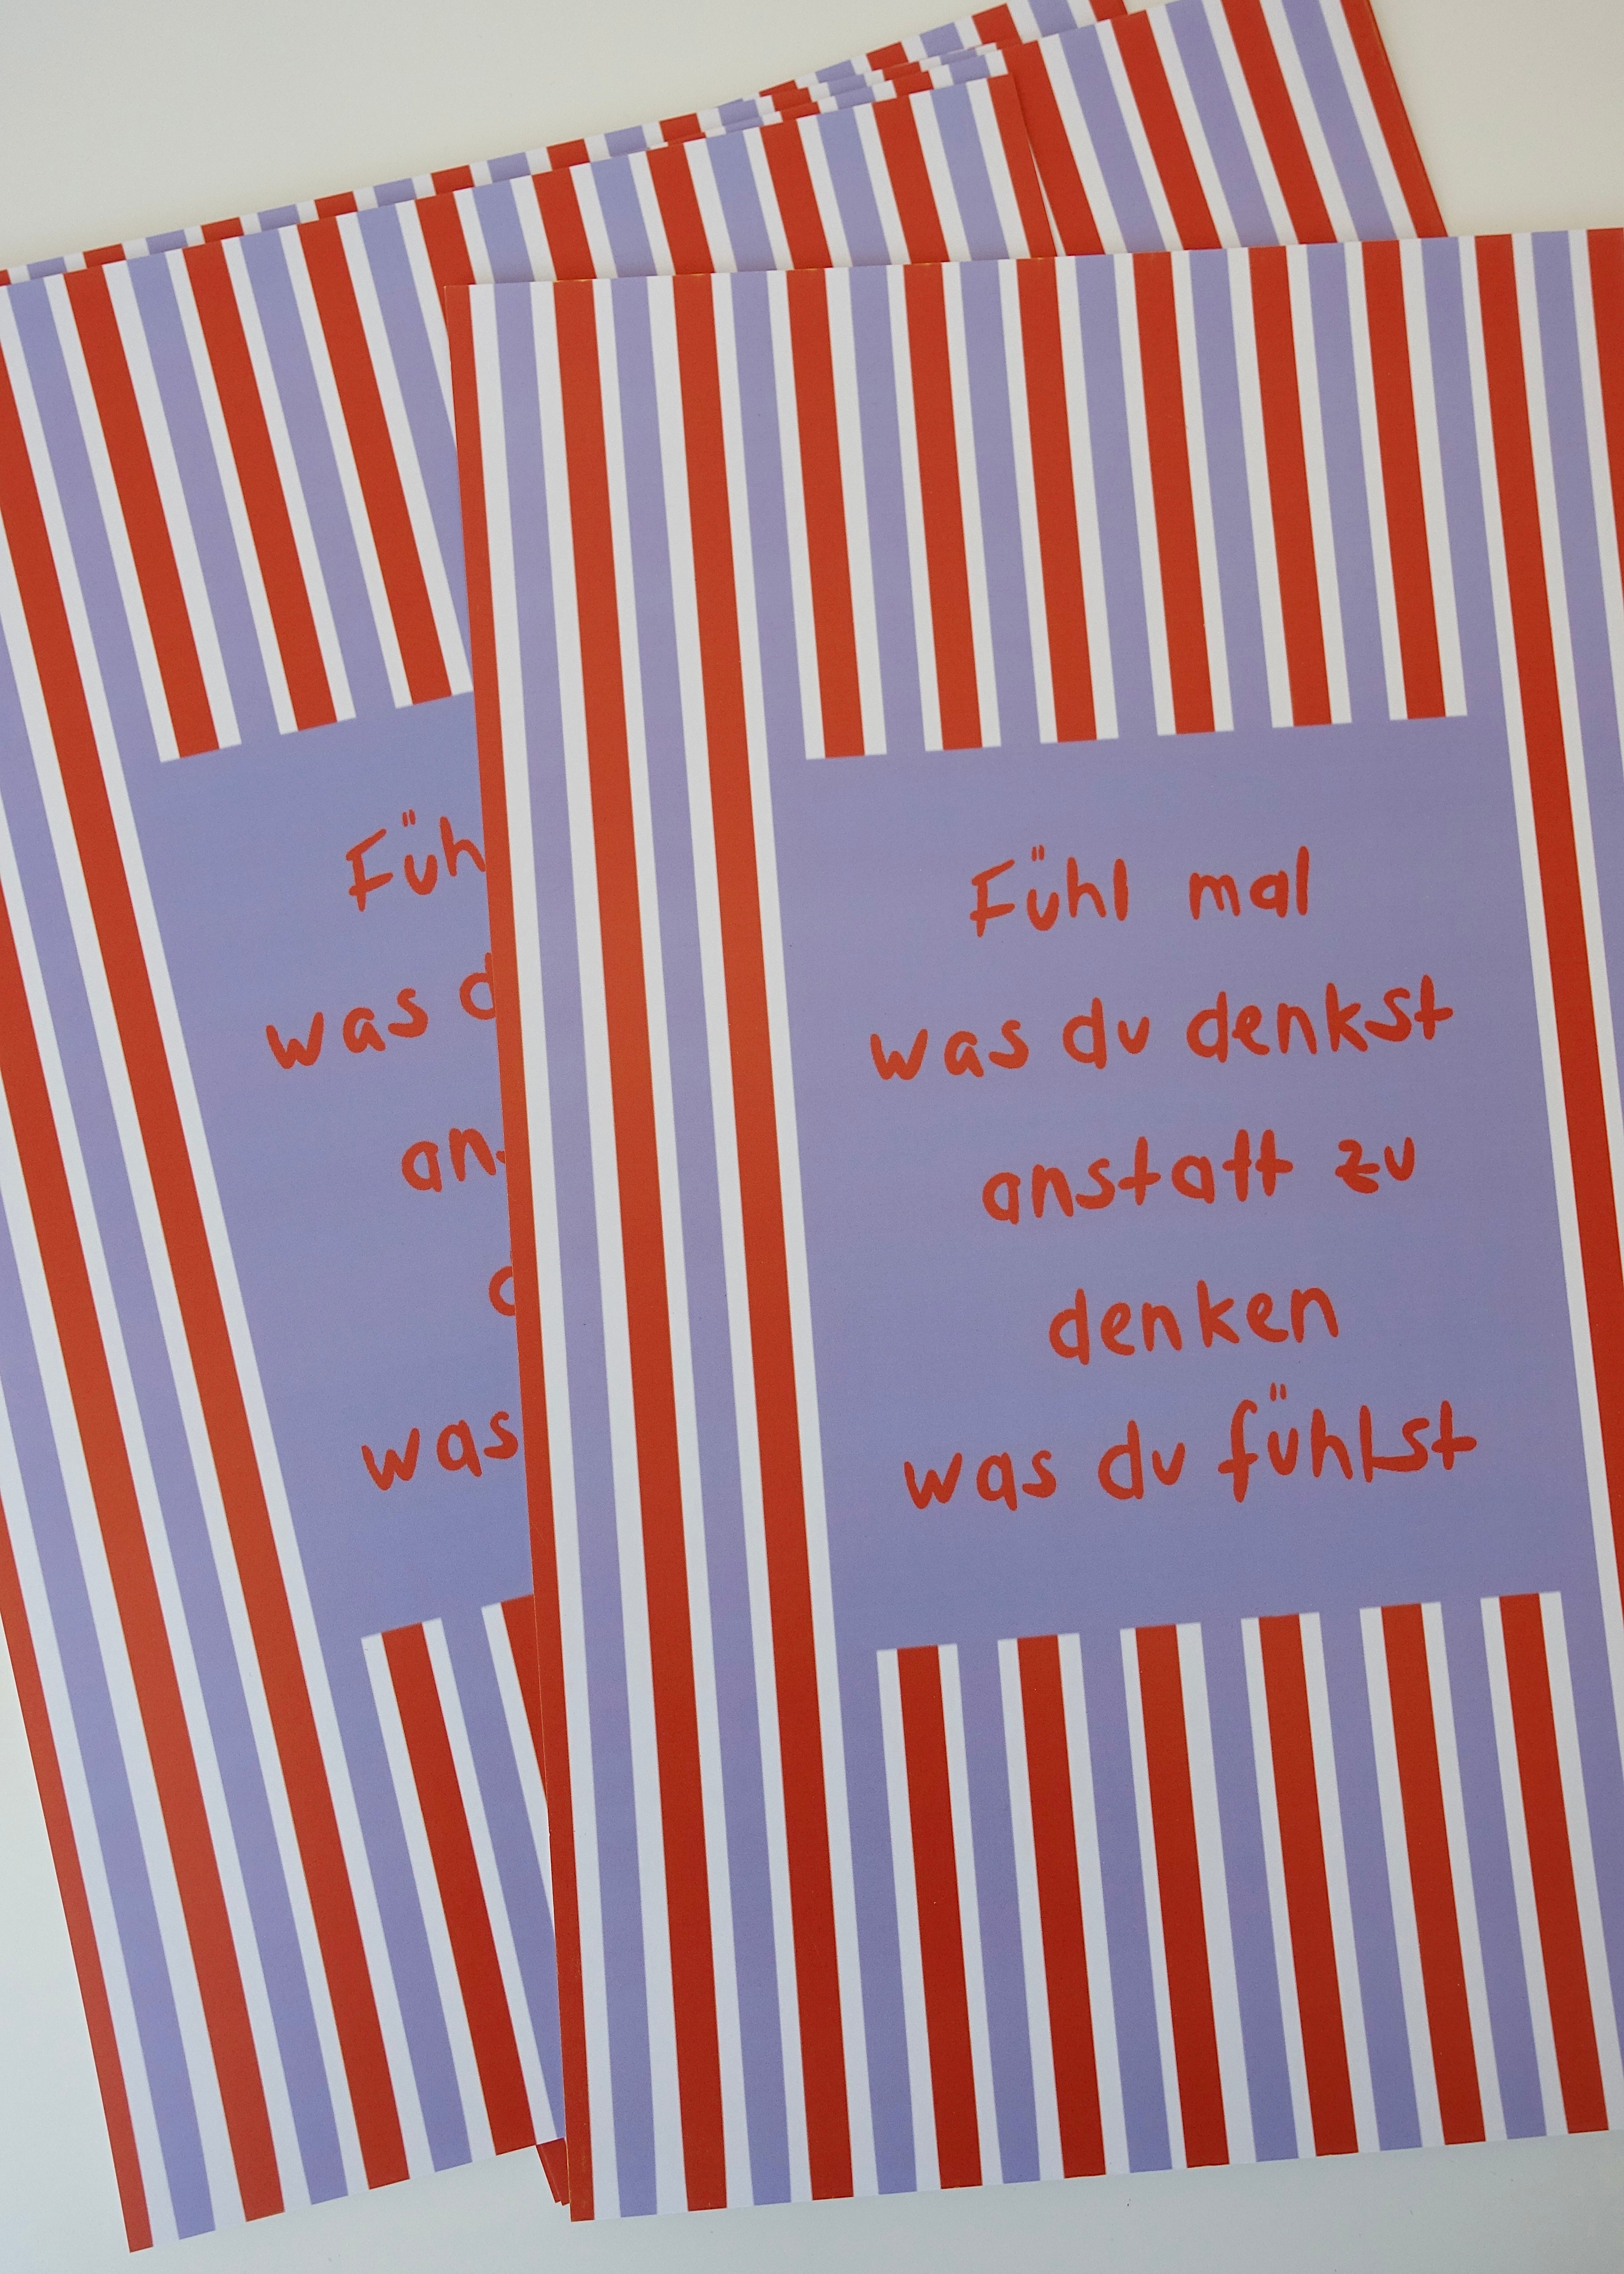 Fühl mal
was du denkst
anstatt zu
denken
was du fühlst
Füh
was d
an
d
was